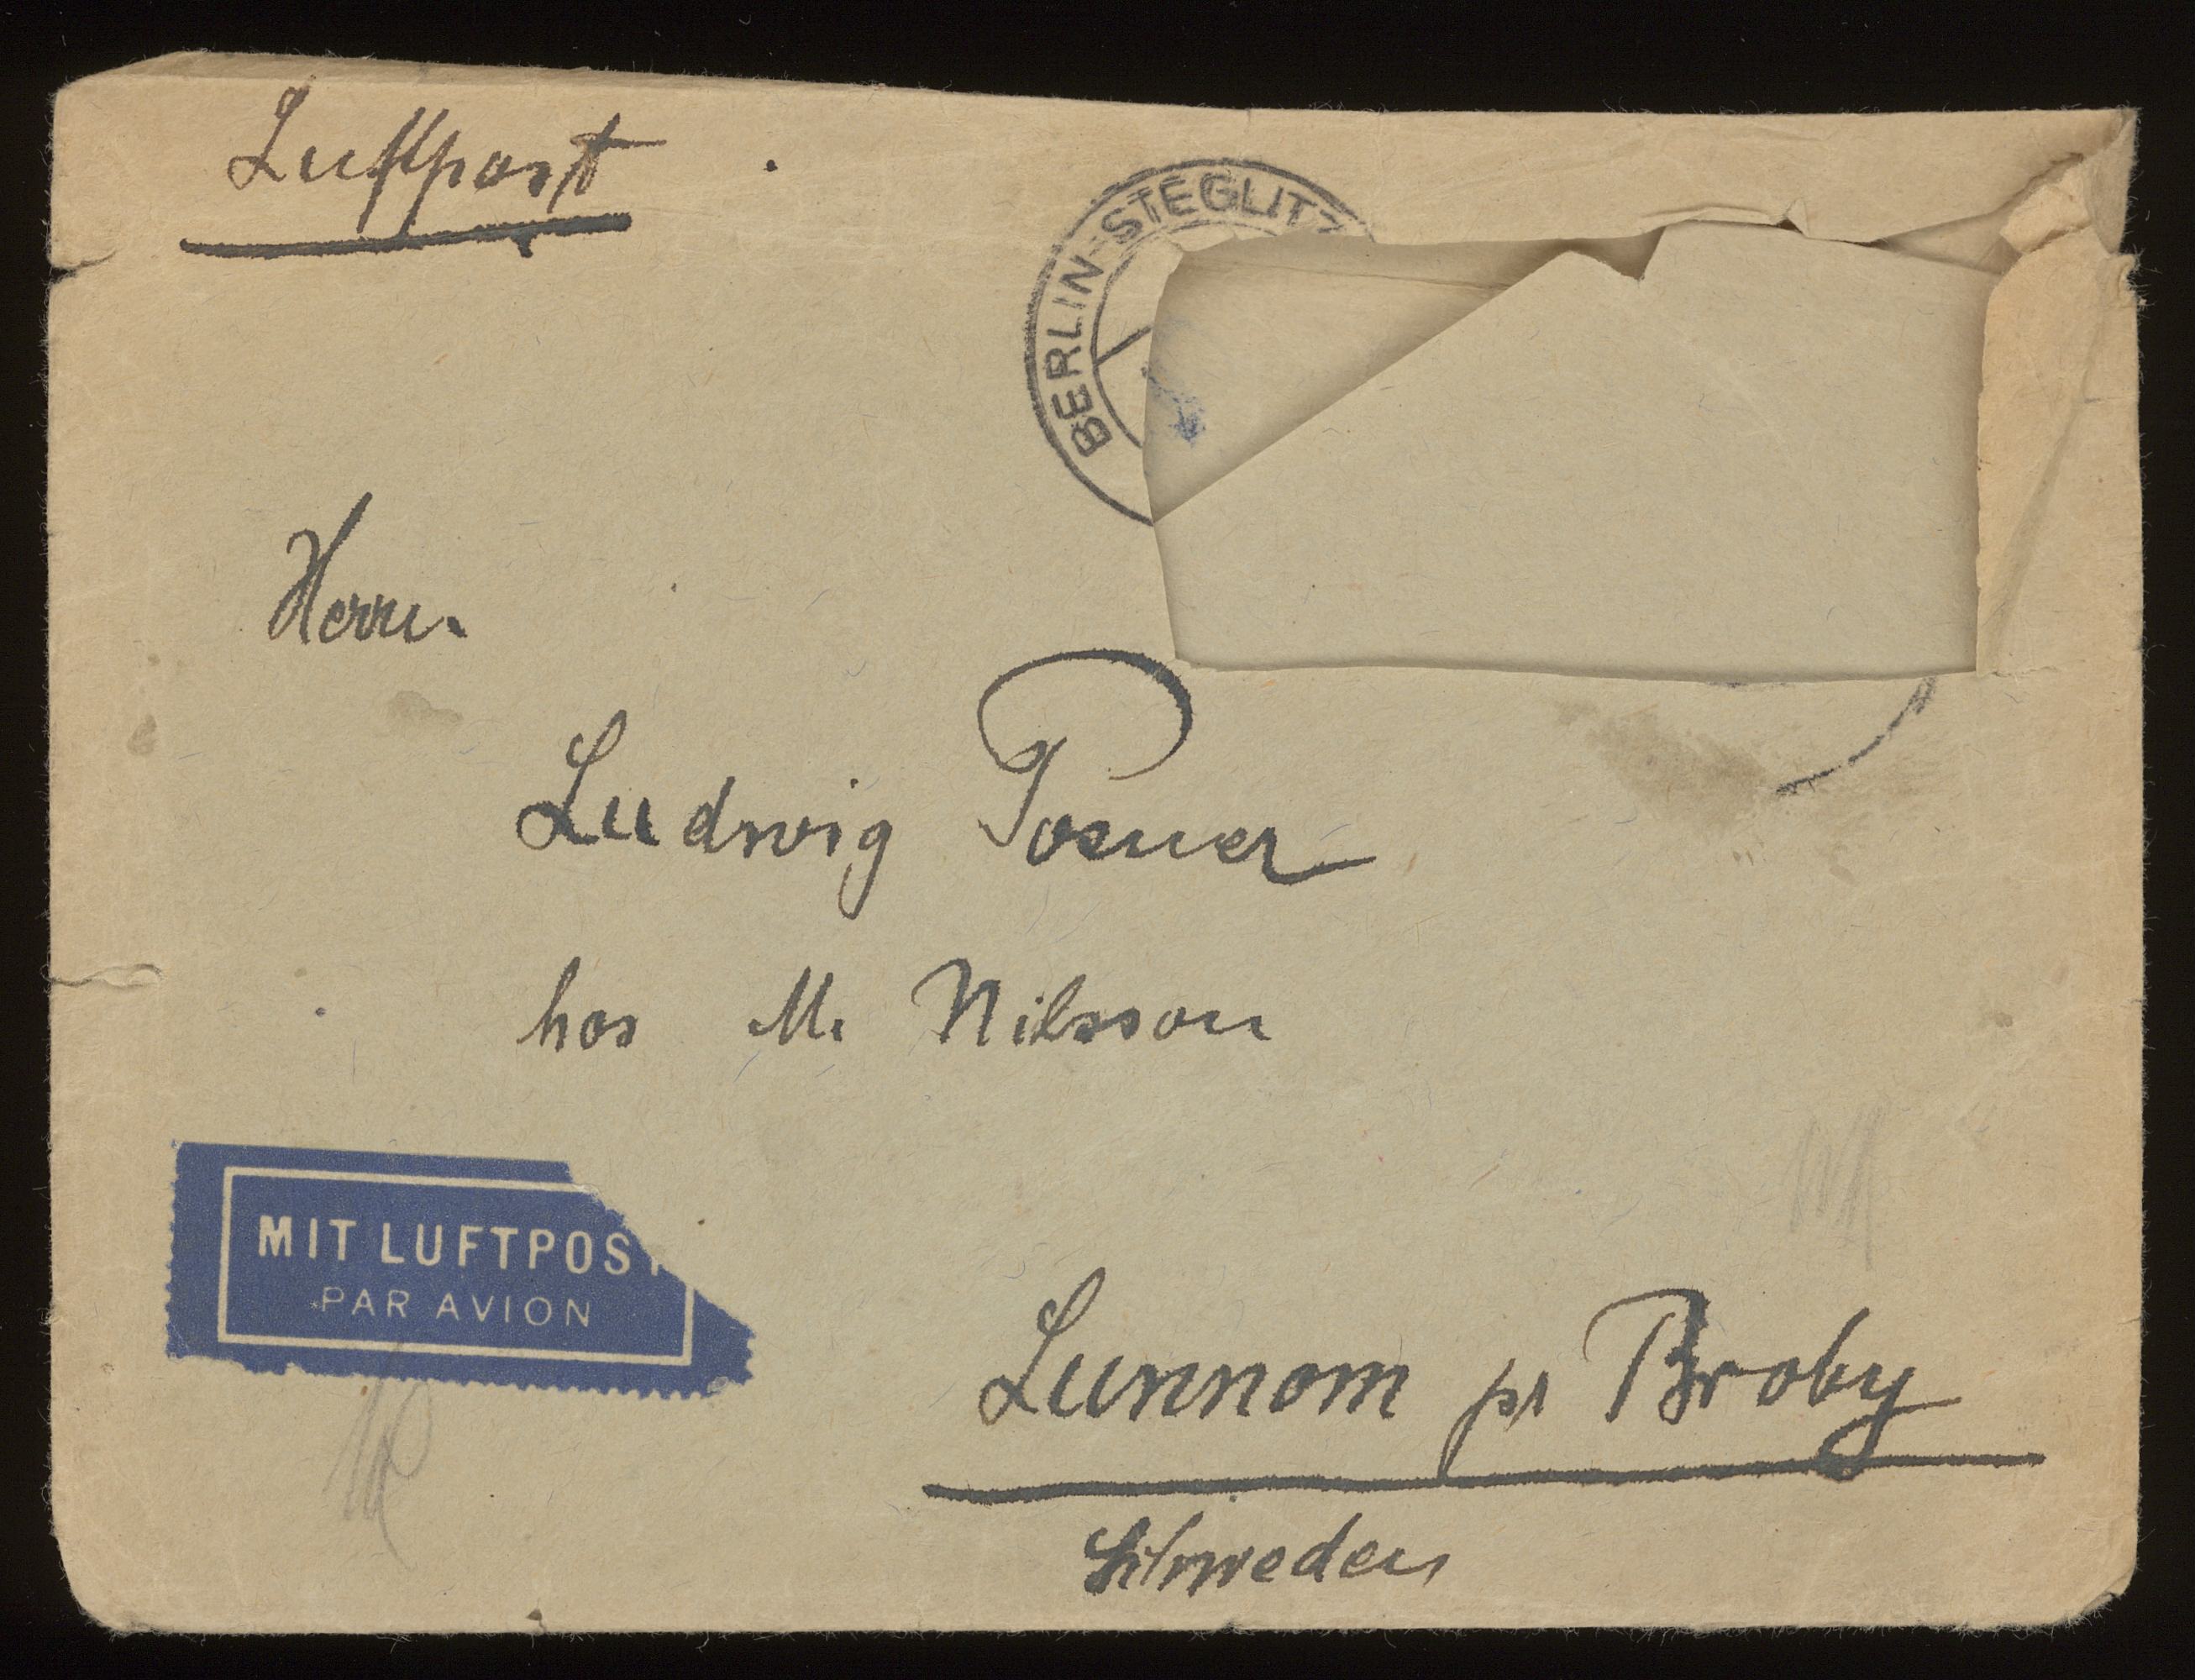 Luftpost
BERLIN-STEGLITZ
Herrn
Ludwig Posner
hos M. Nilsson
MIT LUFTPOST
PAR AVION
Lunnom pr Broby
Schweden